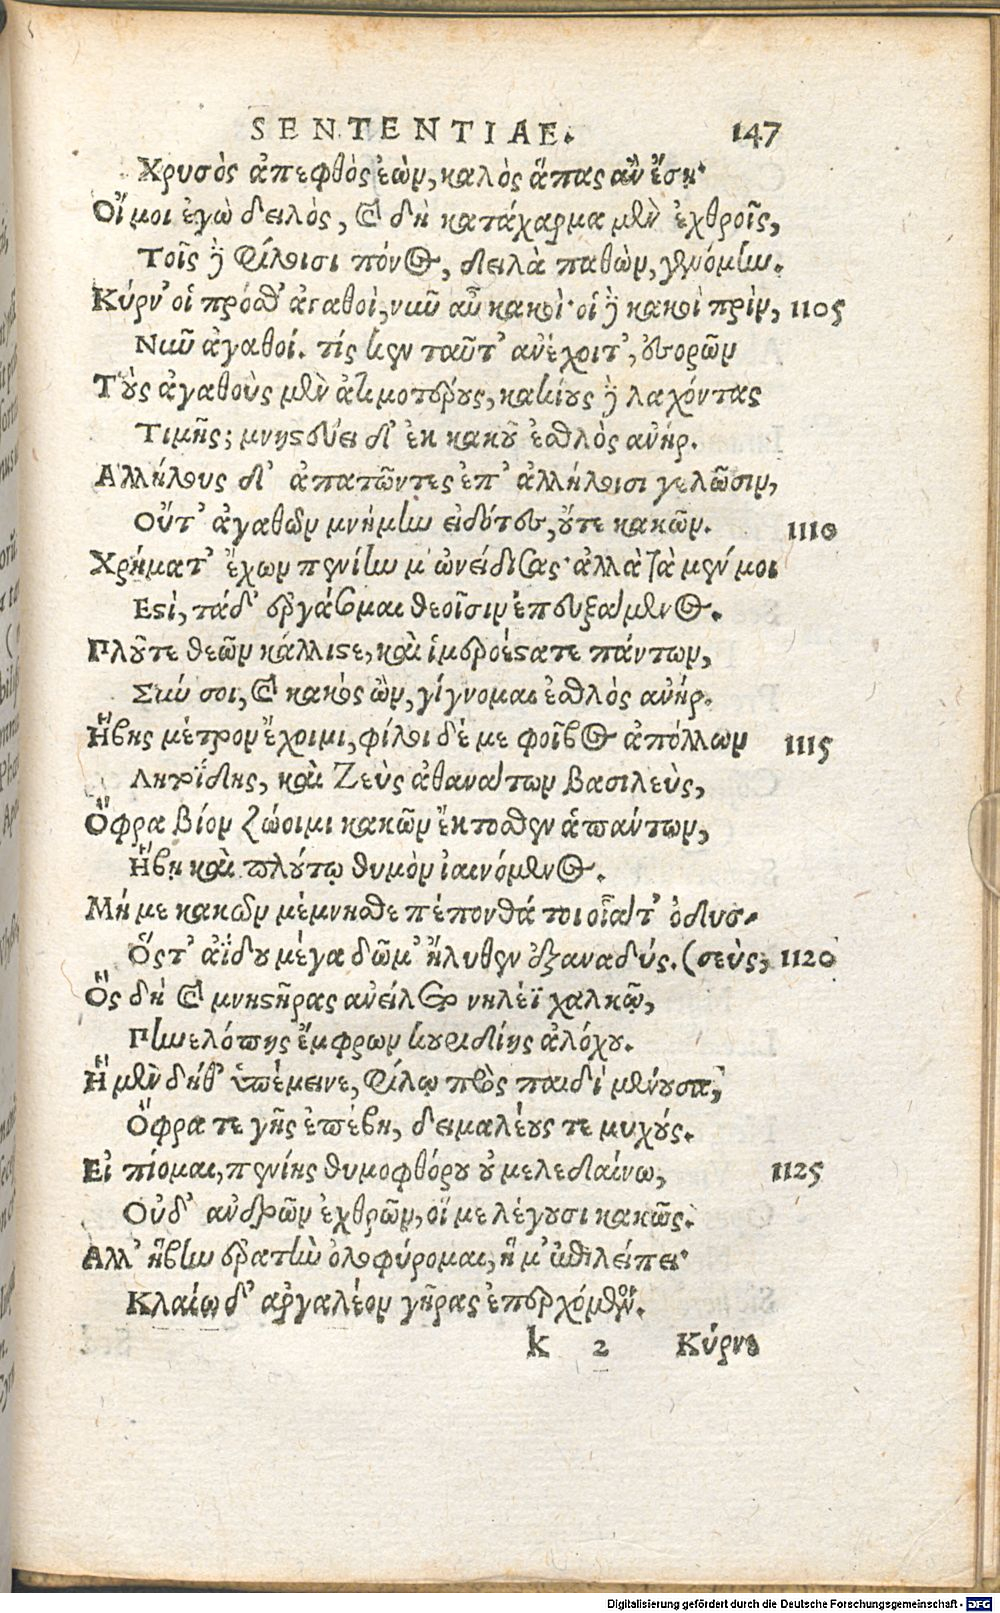 SENTENTIAE. 147
Χρυσὸς ἀπεφθὸς ἐὼν, καλὸς ἅπας ἂν ἔσῃ·
Οἴ μοι ἐγὼ δειλὸς, καὶ δὴ κατάχαρμα μὲν ἐχθροῖς,
Τοῖς δὲ φίλοισι πόνος, δειλὰ παθὼν, γενόμην.
Κύρν' οἱ πρόσθ' ἀγαθοὶ, νῦν αὖ κακοὶ· οἱ δὲ κακοὶ πρὶν, 1105
Νῦν ἀγαθοί. τίς κεν ταῦτ' ἀνέχοιτ', ἐσορῶν
Τοὺς ἀγαθοὺς μὲν ἀτιμοτέρους, κακίους δὲ λαχόντας
Τιμῆς; μνηστεύει δ' ἐκ κακοῦ ἐσθλὸς ἀνήρ.
Αλλήλους δ' ἀπατῶντες ἐπ' ἀλλήλοισι γελῶσιν,
Οὔτ' ἀγαθῶν μνήμην εἰδότες, οὔτε κακῶν. 1110
Χρήματ' ἔχων πενίην μ' ὠνείδισας· ἀλλὰ τὰ μέν μοι
Εστὶ, τάδ' ἐργάσομαι θεοῖσιν ἐπευξάμενος.
Πλοῦτε θεῶν κάλλιστε, καὶ ἱμεροέστατε πάντων,
Σὺν σοι, καὶ κακὸς ὢν, γίγνομαι ἐσθλὸς ἀνήρ.
Ἥβης μέτρον ἔχοιμι, φίλοι δέ με φοῖβος ἀπόλλων 1115
Λητοΐδης, καὶ Ζεὺς ἀθανάτων βασιλεὺς,
Ὄφρα βίον ζώοιμι κακῶν ἔκτοσθεν ἁπάντων,
Ἥβῃ καὶ πλούτῳ θυμὸν ἰαινόμενος.
Μή με κακῶν μέμνησθε πέπονθά τοι οἷά τ' ὀδυσ-
Ὅστ' ἀΐδου μέγα δῶμ' ἤλυθεν ἐξαναδύς. (σεὺς, 1120
Ὃς δὴ καὶ μνηστῆρας ἀνείλετο νηλέϊ χαλκῷ,
Πηνελόπης ἔμφρων κουριδίης ἀλόχου.
Ἣ μὲν δήθ' ὑπέμεινε, φίλῳ πρὸς παιδὶ μένουσα,
Ὄφρα τε γῆς ἐπέβη, δειμαλέους τε μυχούς.
Εἰ πίομαι, πενίης θυμοφθόρου οὐ μελεδαίνω, 1125
Οὐδ' ἀνδρῶν ἐχθρῶν, οἵ με λέγουσι κακῶς.
Αλλ' ἥβην ἐρατὴν ὀλοφύρομαι, ἥ μ' ἐπιλείπει·
Κλαίω δ' ἀργαλέον γῆρας ἐπερχόμενον.
k 2 Κύρνε
Digitalisierung gefördert durch die Deutsche Forschungsgemeinschaft - DFG